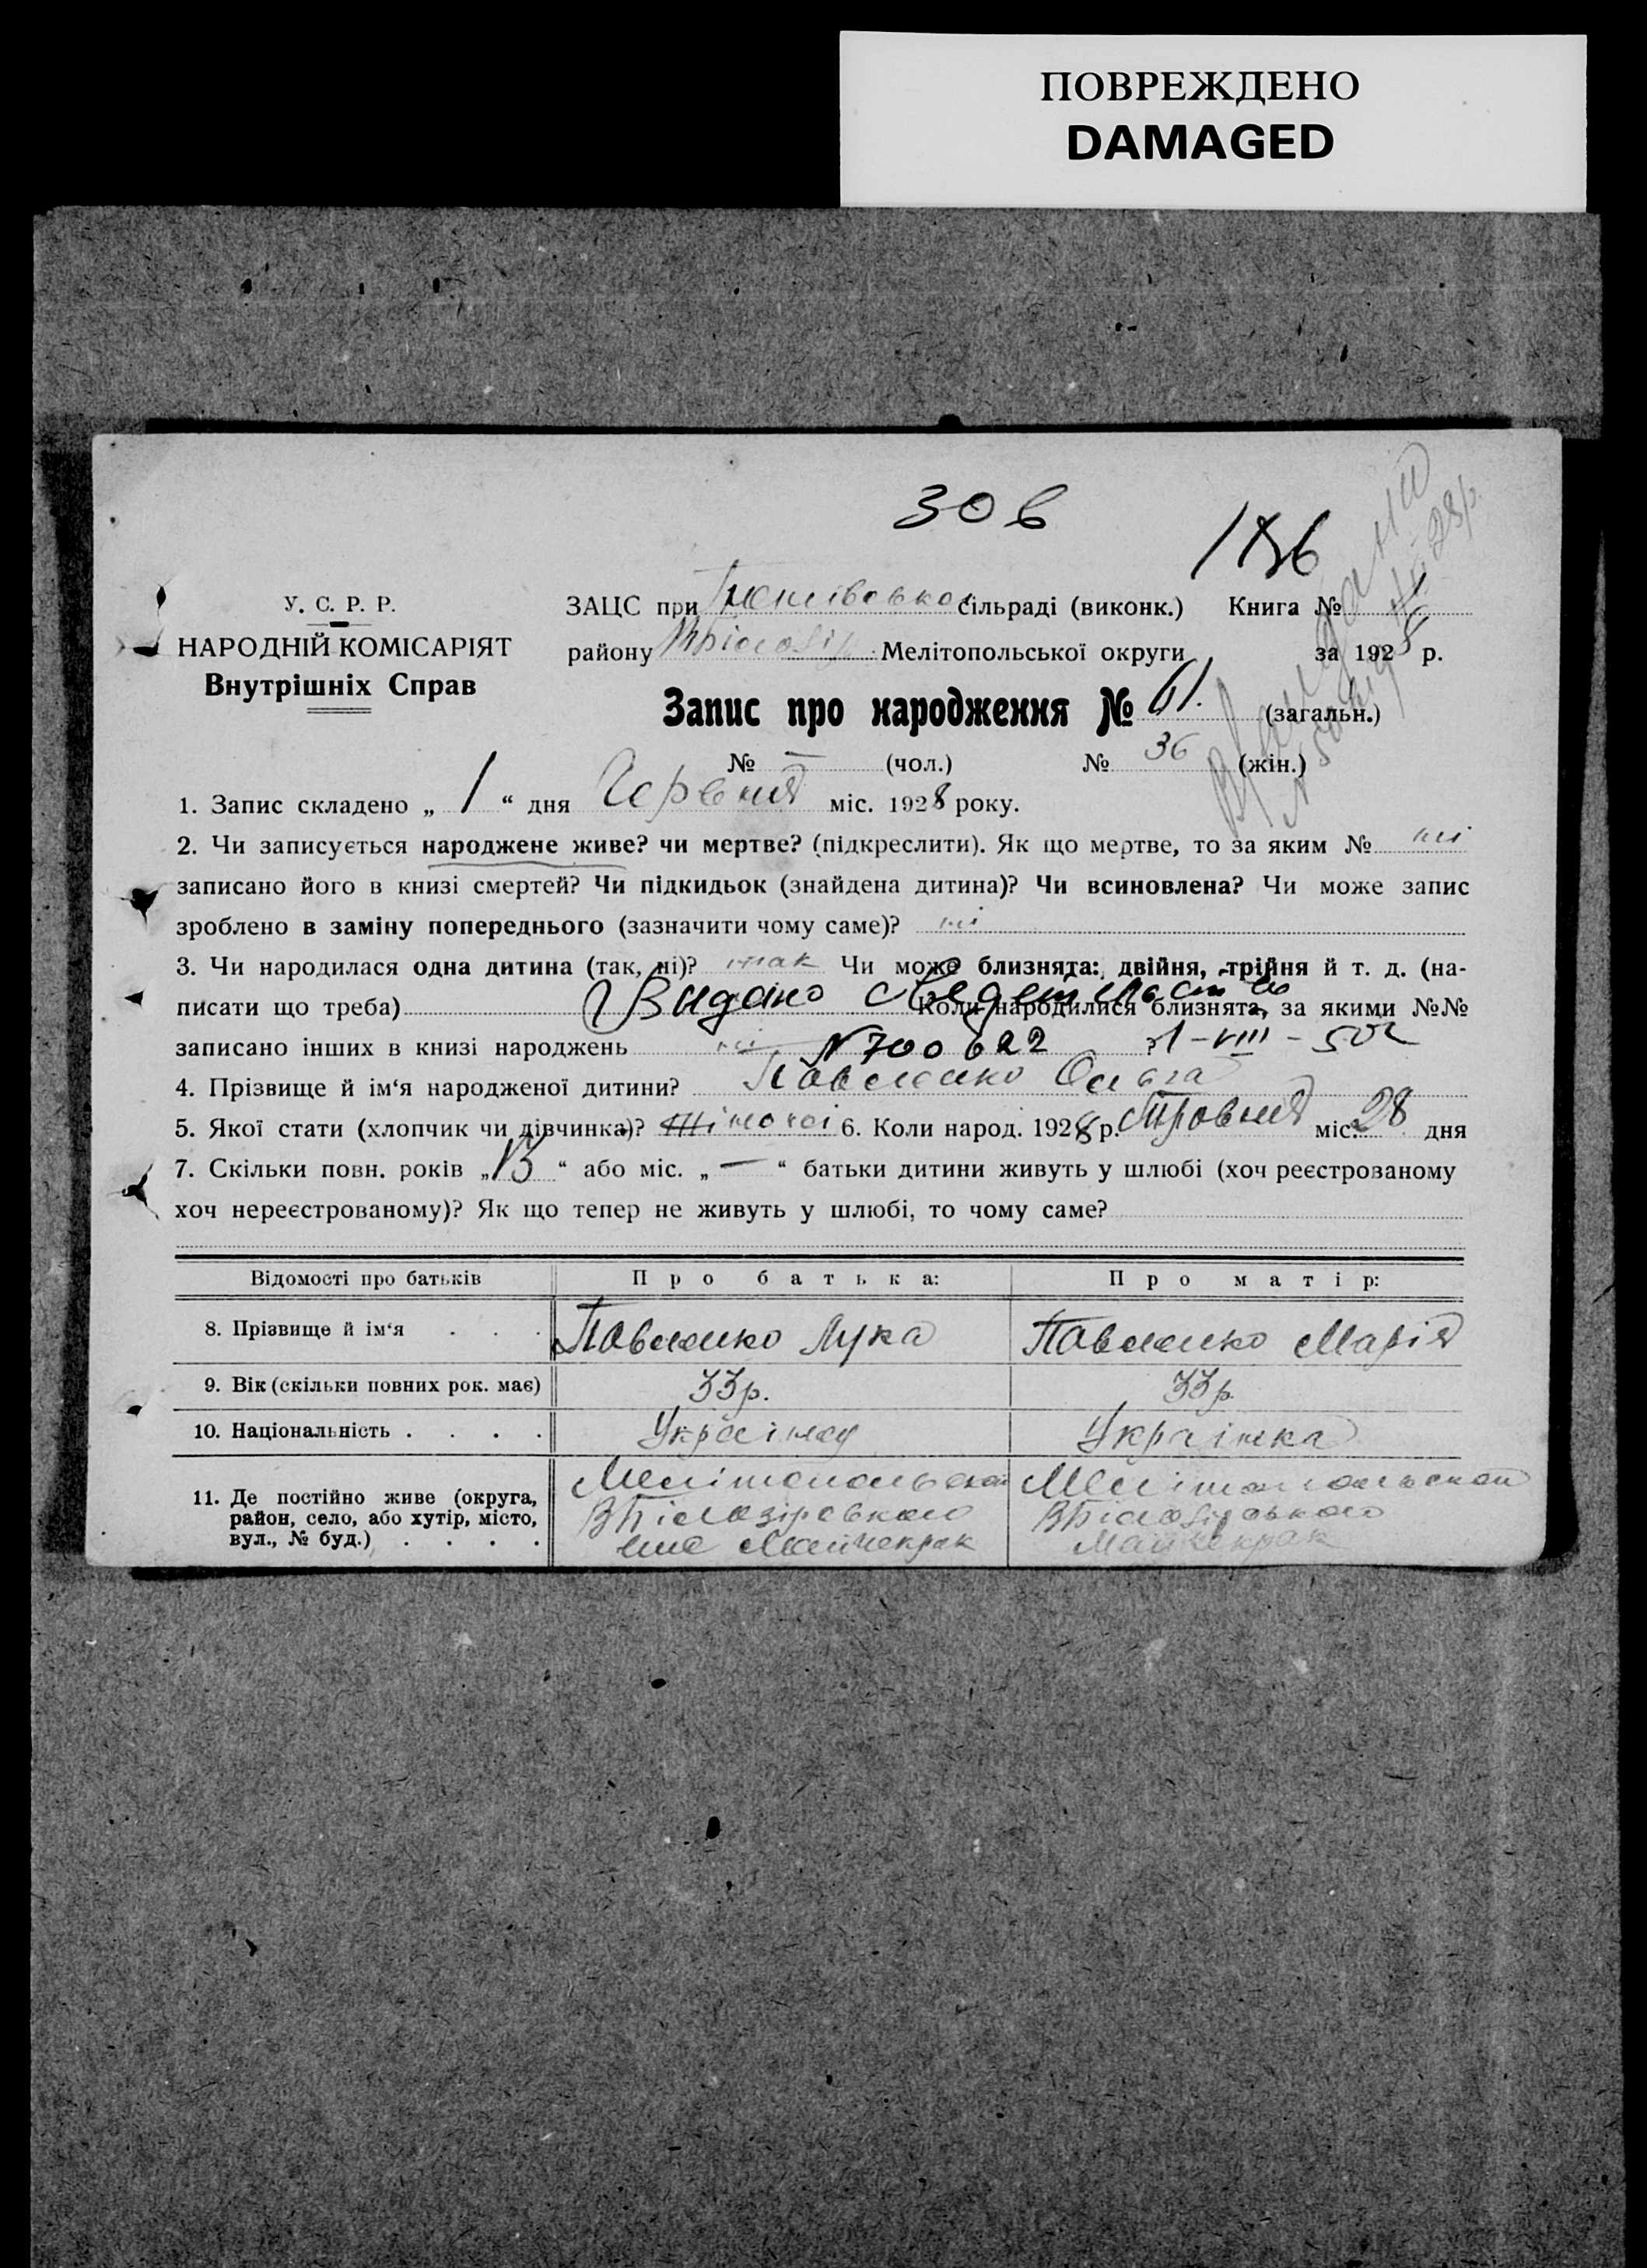 ПОВРЕЖДЕНО
DAMAGED
30 в
186
У. С. Р. Р.
НАРОДНІЙ КОМІСАРІЯТ
Внутрішніх Справ
ЗАЦС при сільраді (виконк.) Книга №
району Мелітопольської округи за 1928 р.
Запис про народження № 61. (загальн.)
№ — (чол.) № 36 (жін.)
1. Запис складено „ 1 “ дня Червня міс. 1928 року.
2. Чи записується народжене живе? чи мертве? (підкреслити). Як що мертве, то за яким № ні
записано його в книзі смертей? Чи підкидьок (знайдена дитина)? Чи всиновлена? Чи може запис
зроблено в заміну попереднього (зазначити чому саме)? ні
3. Чи народилася одна дитина (так, ні)? так Чи може близнята: двійня, трійня й т. д. (на-
писати що треба) Коли народилися близнята, за якими №№
Видано
записано інших в книзі народжень ні ?
N 700622 1-VIII-50г
4. Прізвище й ім‘я народженої дитини? Павленко Ольга
5. Якої стати (хлопчик чи дівчинка)? Жіночої 6. Коли народ. 1928 р. Травня міс. 28 дня
7. Скільки повн. років „ 13 “ або міс. „ — “ батьки дитини живуть у шлюбі (хоч реєстрованому
хоч нереєстрованому)? Як що тепер не живуть у шлюбі, то чому саме?
Відомості про батьків Про батька: Про матір:
8. Прізвище й ім‘я . . . Павленко Лука Павленко Марія
9. Вік (скільки повних рок. має) 33 р. 33 р.
10. Національність . . . . Українец Українка
11. Де постійно живе (округа,
район, село, або хутір, місто,
вул., № буд.) . . . .
Мелітопольской Мелітопольской